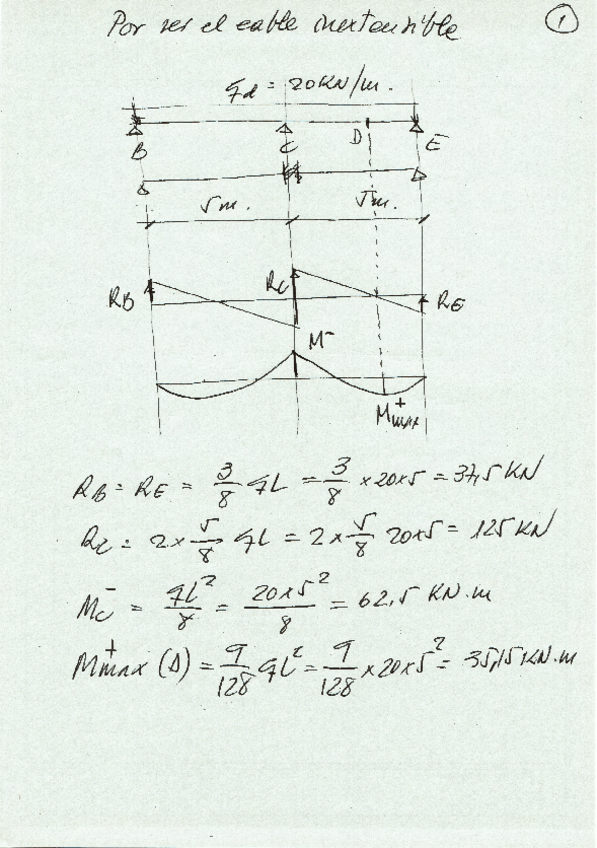 Por ser el cable inextensible
1
qd = 20 KN/m.
B C D E
5m. 5m.
RB RC RE
M-
M+max
RB = RE = 3/8 qL = 3/8 x 20x5 = 37,5 KN
RC = 2 x 5/8 qL = 2 x 5/8 20x5 = 125 KN
Mc- = qL²/8 = 20x5²/8 = 62,5 KN.m
M+max (D) = 9/128 qL² = 9/128 x 20x5² = 35,15 KN.m